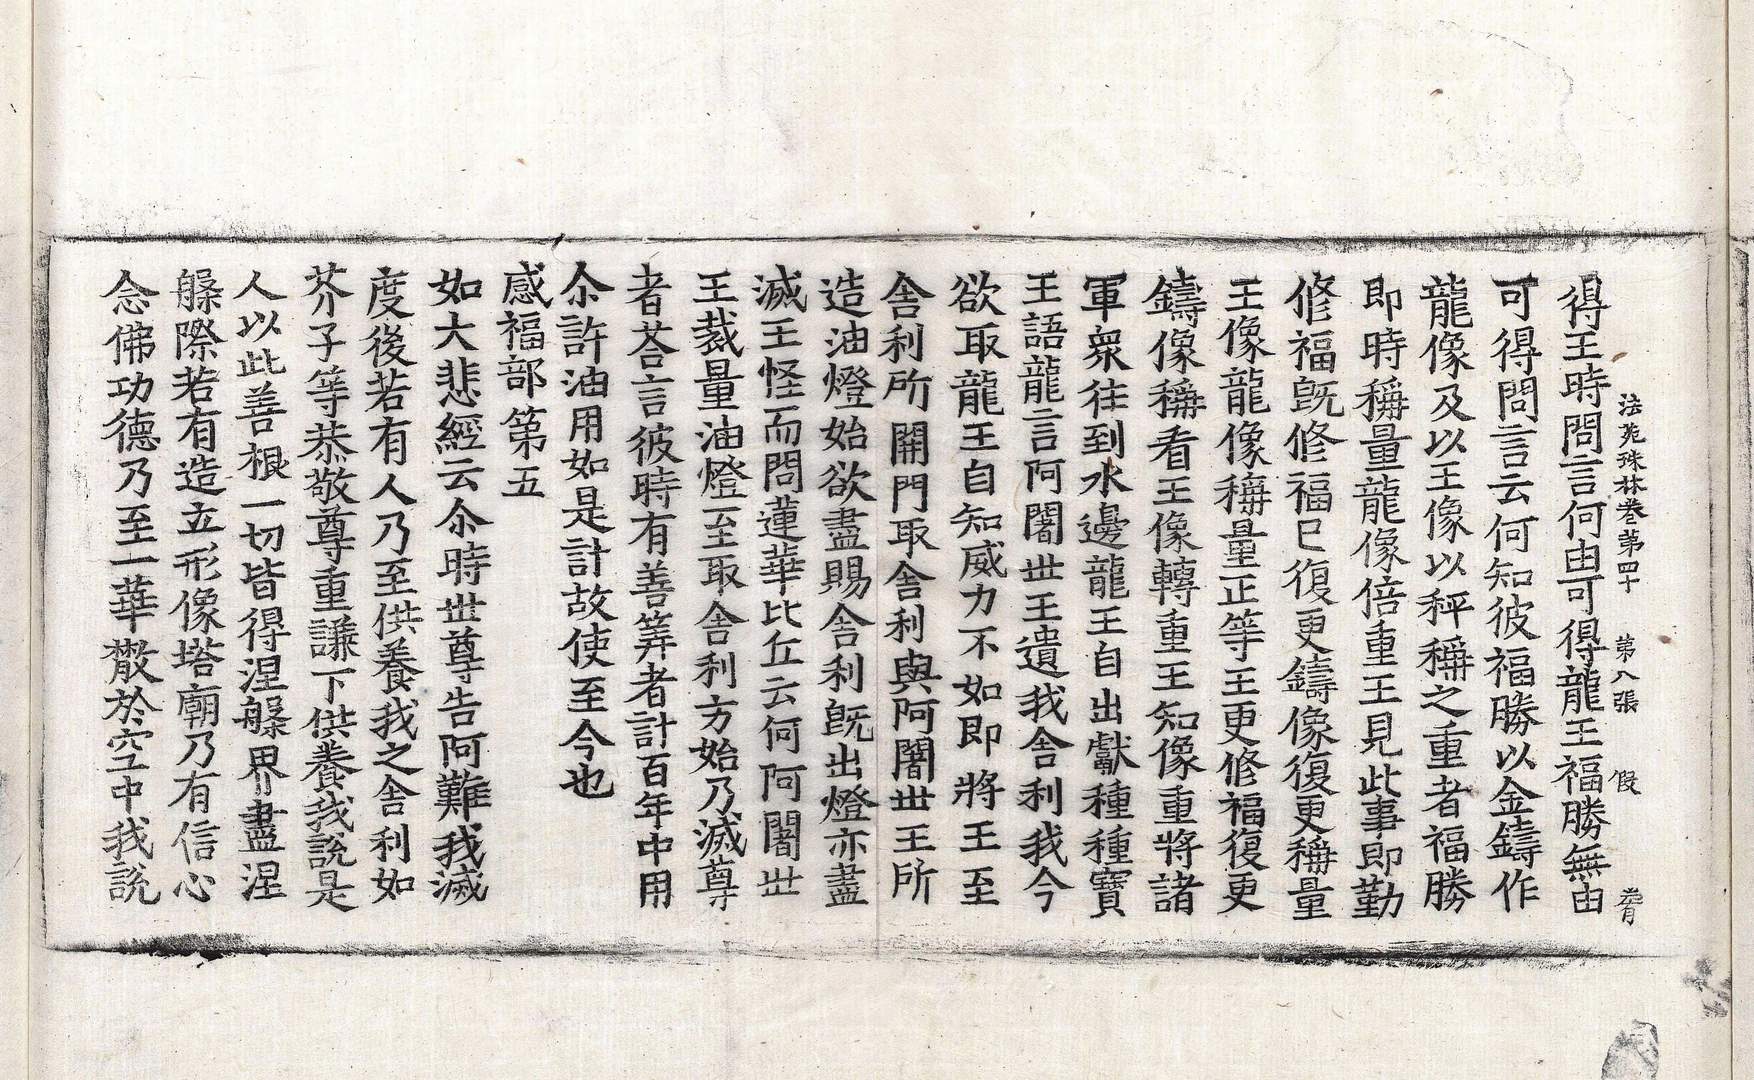 法苑珠林卷第四十 第八張 假
得王時問言何由可得龍王福勝無由
可得問言云何知彼福勝以金鑄作
龍像及以王像以秤稱之重者福勝
即時稱量龍像倍重王見此事即勤
修福既修福已復更鑄像復更稱量
王像龍像稱量正等王更修福復更
鑄像稱看王像轉重王知像重將諸
軍衆往到水邊龍王自出獻種種寶
王語龍言阿闍世王遺我舍利我今
欲取龍王自知威力不如即將王至
舍利所開門取舍利與阿闍世王所
造油燈始欲盡賜舍利既出燈亦盡
滅王怪而問蓮華比丘云何阿闍世
王裁量油燈至取舍利方始乃滅尊
者荅言彼時有善筭者計百年中用
尒許油用如是計故使至今也
感福部第五
如大悲經云尒時世尊告阿難我滅
度後若有人乃至供養我之舍利如
芥子等恭敬尊重謙下供養我說是
人以此善根一切皆得涅槃界盡涅
槃際若有造立形像塔廟乃有信心
念佛功德乃至一華散於空中我說